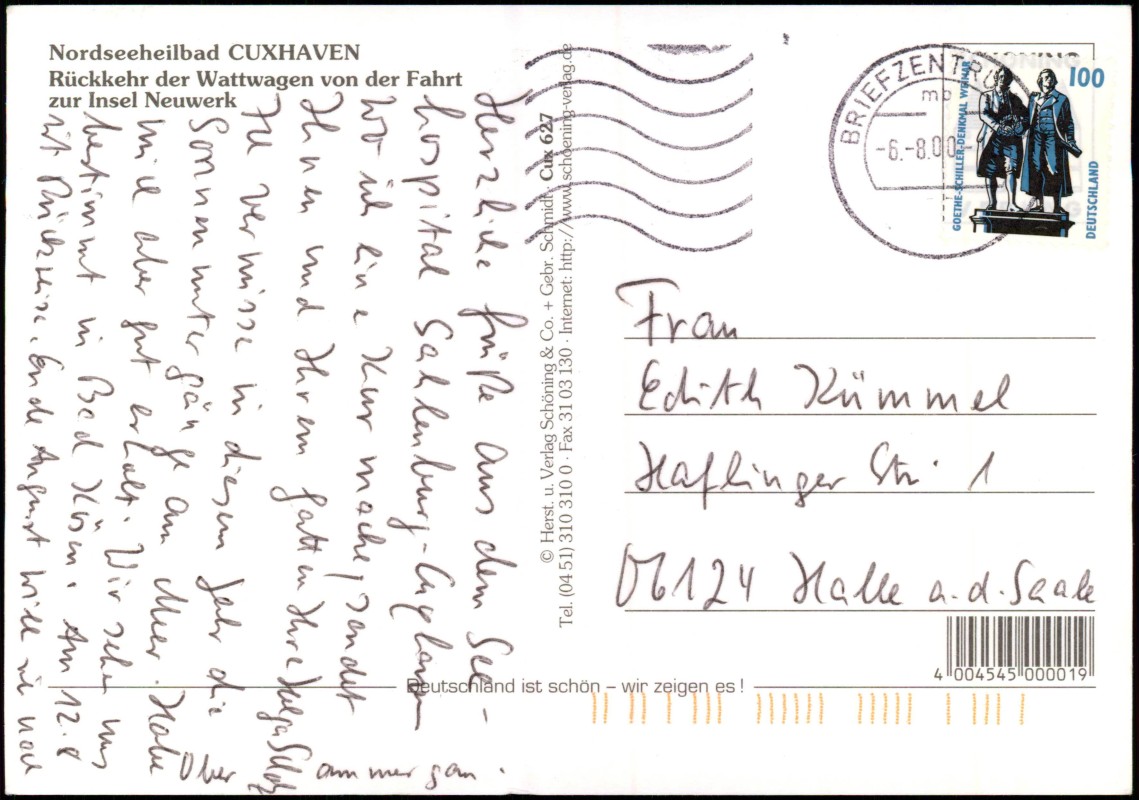 Nordseeheilbad CUXHAVEN
Rückkehr der Wattwagen von der Fahrt
zur Insel Neuwerk
Herzliche Grüße aus dem See-
hospital Sahlenburg-Cuxhaven
wo ich eine Kur mache, sendet
Ihnen und Ihrem Gatten Ihre Helga
Ich vermisse in diesem Jahr die
Sonnenuntergänge am Meer. Habe
mich aber gut erholt. Wir sehen uns
bestimmt in Bad Kösen. Am 12.8
ist Rückreise. Ende August will ich nach
Oberammergau.
© Herst. u. Verlag Schöning & Co. + Gebr. Schmidt · Cux 627
Tel. (04 51) 310 310 0 · Fax 31 03 130 · Internet: http://www.schoening-verlag.de
BRIEFZENTRUM
mb
-6.-8.00-
SCHÖNING
100
GOETHE-SCHILLER-DENKMAL WEIMAR
DEUTSCHLAND
Frau
Edith Kümmel
Haflinger Str. 1
06124 Halle a.d. Saale
4 004545 000019
Deutschland ist schön – wir zeigen es !